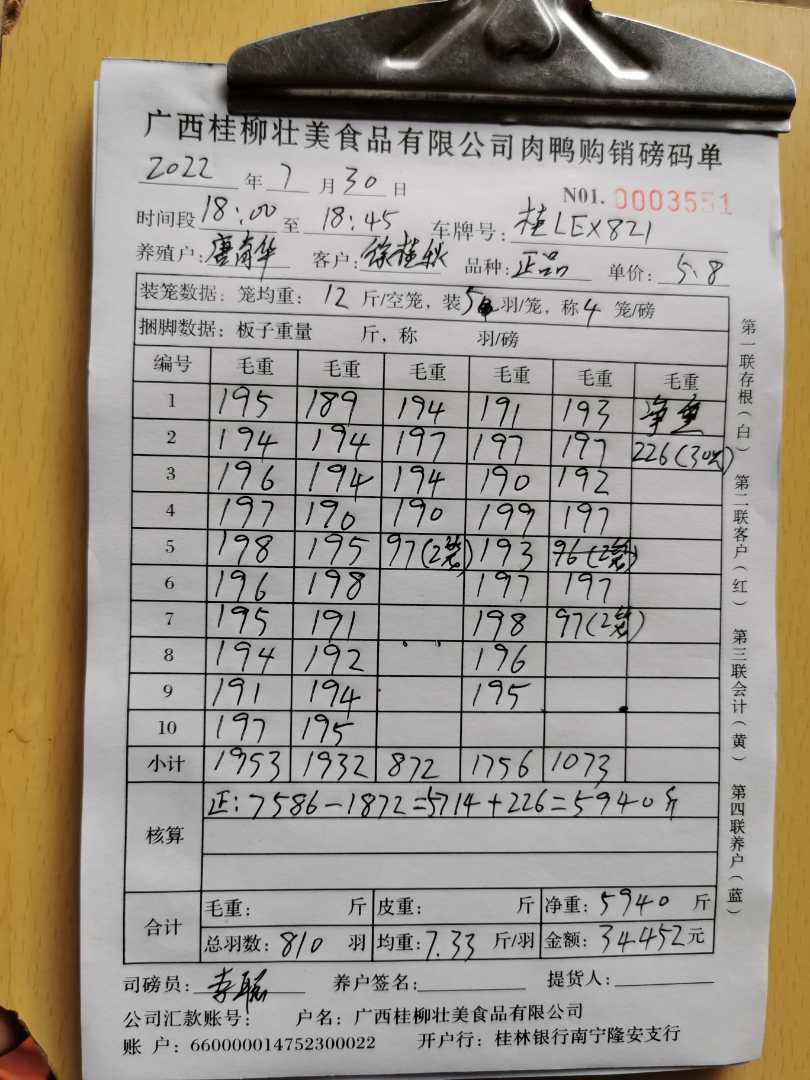 广西桂柳壮美食品有限公司肉鸭购销磅码单
2022 年 7 月 30 日 N01. 0003551
时间段 18:00 至 18:45 车牌号: 桂LEX821
养殖户: 客户: 徐桂秋 品种: 正品 单价: 5.8
装笼数据: 笼均重: 12 斤/空笼, 装 5 羽/笼, 称 4 笼/磅
捆脚数据: 板子重量 斤, 称 羽/磅
编号 毛重 毛重 毛重 毛重 毛重 毛重
1 195 189 194 191 193 净重
2 194 194 197 197 197 226(30只)
3 196 194 194 190 192
4 197 190 190 199 197
5 198 195 97(2笼) 193 96(2笼)
6 196 198 197 197
7 195 191 198 97(2笼)
8 194 192 196
9 191 194 195
10 197 195
小计 1953 1932 872 1756 1073
核算 正: 7586-1872=5714+226=5940斤
合计 毛重: 斤 皮重: 斤 净重: 5940 斤
总羽数: 810 羽 均重: 7.33 斤/羽 金额: 34452元
司磅员: 养户签名: 提货人:
公司汇款账号: 户名: 广西桂柳壮美食品有限公司
账 户: 660000014752300022 开户行: 桂林银行南宁隆安支行
第一联存根(白) 第二联客户(红) 第三联会计(黄) 第四联养户(蓝)